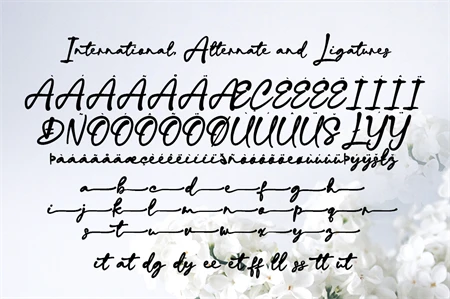 International, Alternate and Ligatures
ÀÁÂÃÄÅÆÇÈÉÊËÌÍÎÏ
ÐÑÒÓÔÕÖØÙÚÛÜŠŁÝŸ
a b c d e f g h
i j k l m n o p q r
s t u v w x y z
it at dg dy ee et ff ll ss tt ut